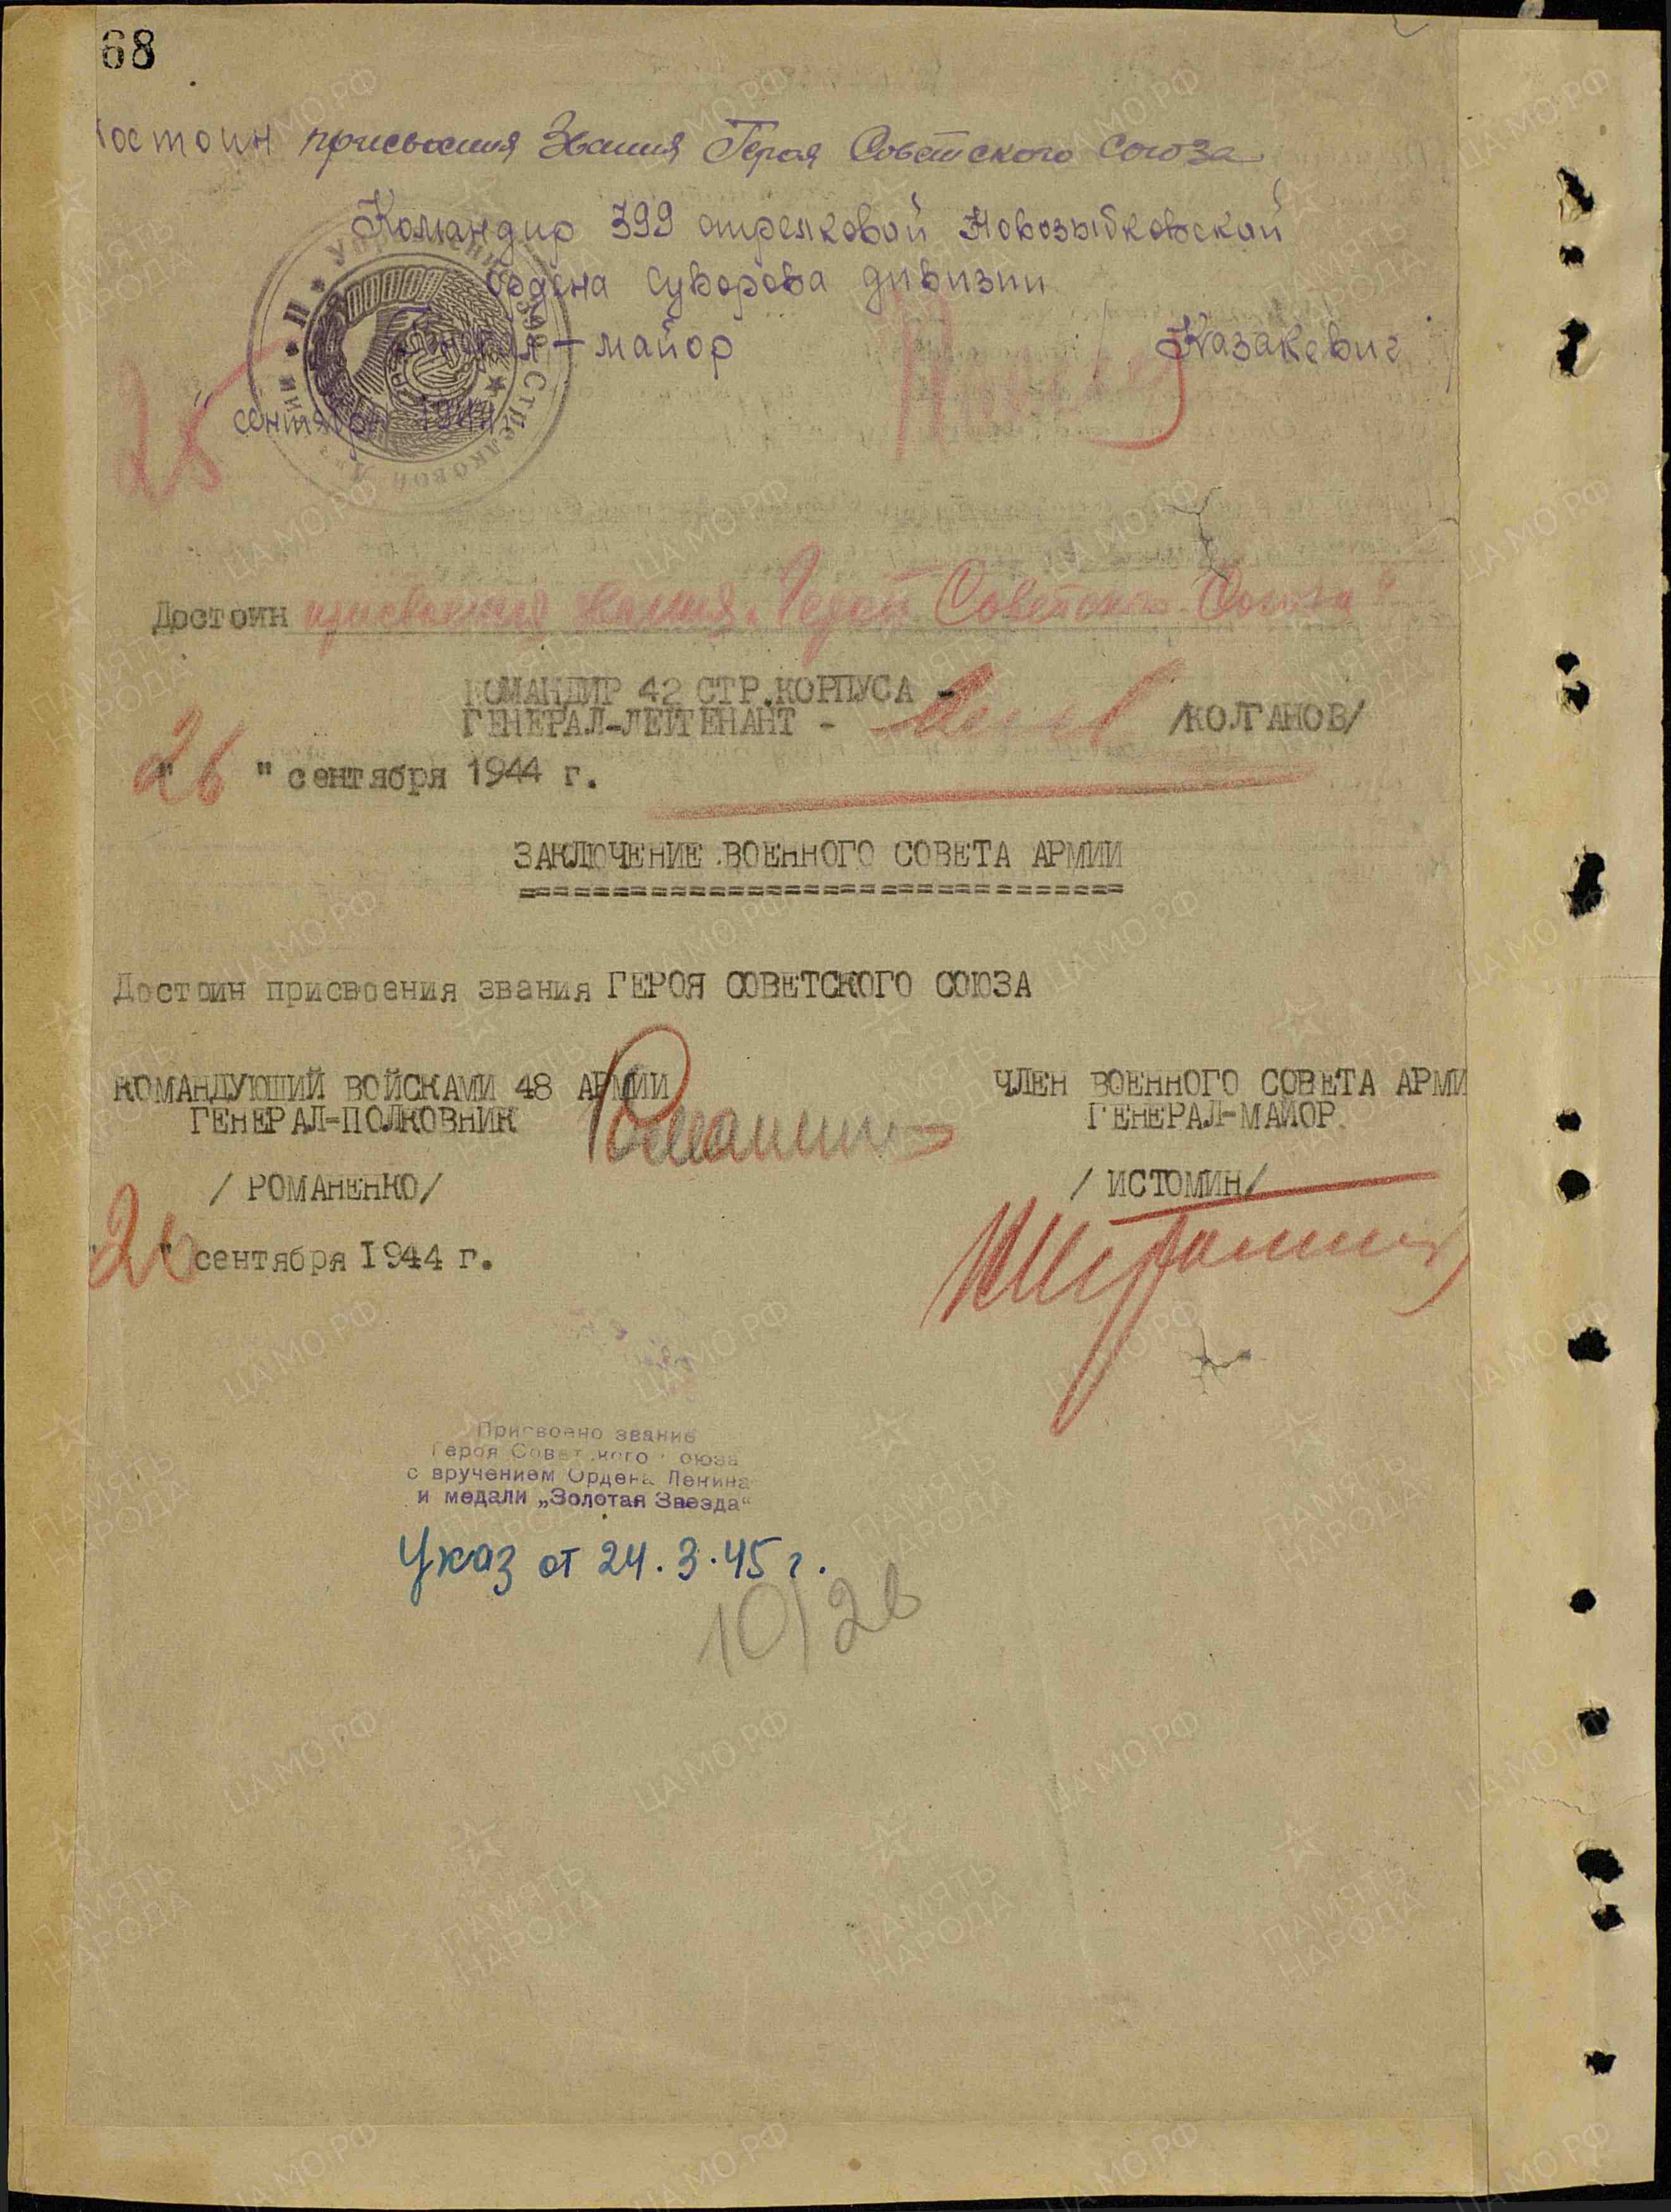 68
Достоин присвоения Звания Героя Советского Союза
Командир 399 стрелковой Новозыбковской
Ордена Суворова дивизии
генерал-майор Казакевич
25
" сентября 1944 г.
Достоин присвоения звания "Герой Советского Союза"
КОМАНДИР 42 СТР.КОРПУСА -
ГЕНЕРАЛ-ЛЕЙТЕНАНТ - /КОЛГАНОВ/
"26" сентября 1944 г.
ЗАКЛЮЧЕНИЕ ВОЕННОГО СОВЕТА АРМИИ
Достоин присвоения звания ГЕРОЯ СОВЕТСКОГО СОЮЗА
КОМАНДУЮЩИЙ ВОЙСКАМИ 48 АРМИИ
ГЕНЕРАЛ-ПОЛКОВНИК
/ РОМАНЕНКО/
"26" сентября 1944 г.
ЧЛЕН ВОЕННОГО СОВЕТА АРМИ
ГЕНЕРАЛ-МАЙОР
/ ИСТОМИН/
Присвоено звание
Героя Советского Союза
с вручением Ордена Ленина
и медали „Золотая Звезда“
Указ от 24.3.45 г.
10/26